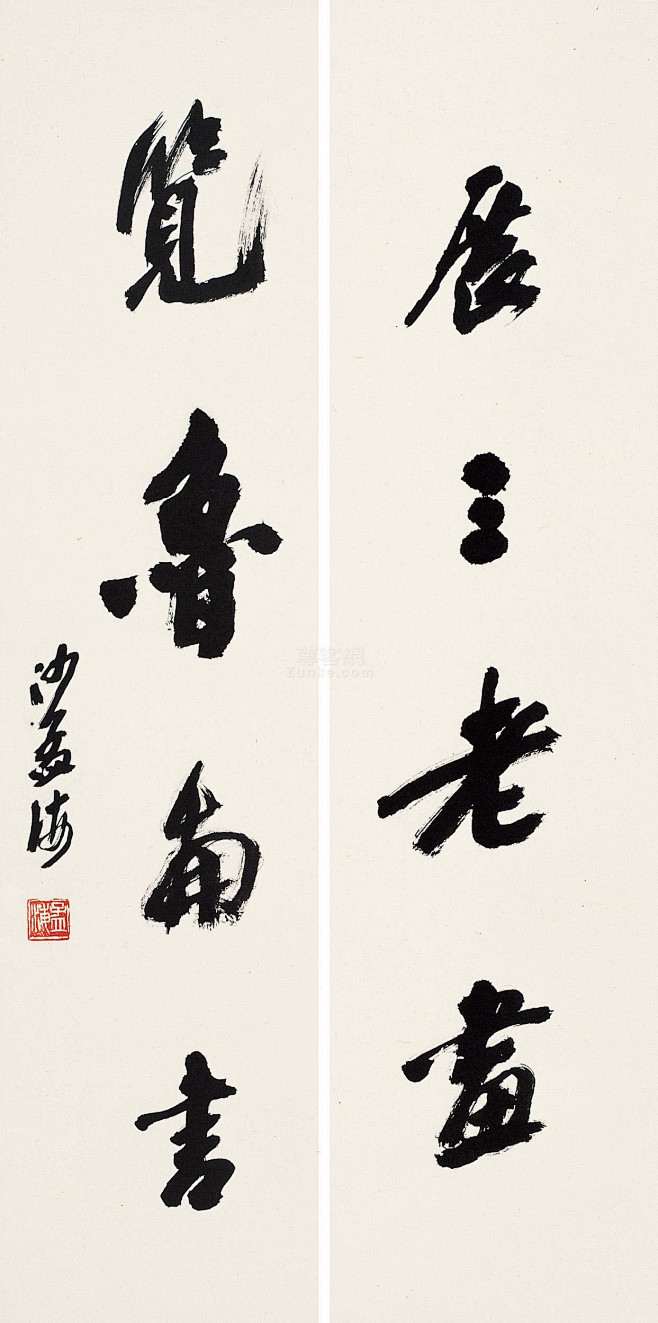 展三老畫
覽魯書
沙孟海
孟海
尊客網
Zunke.com